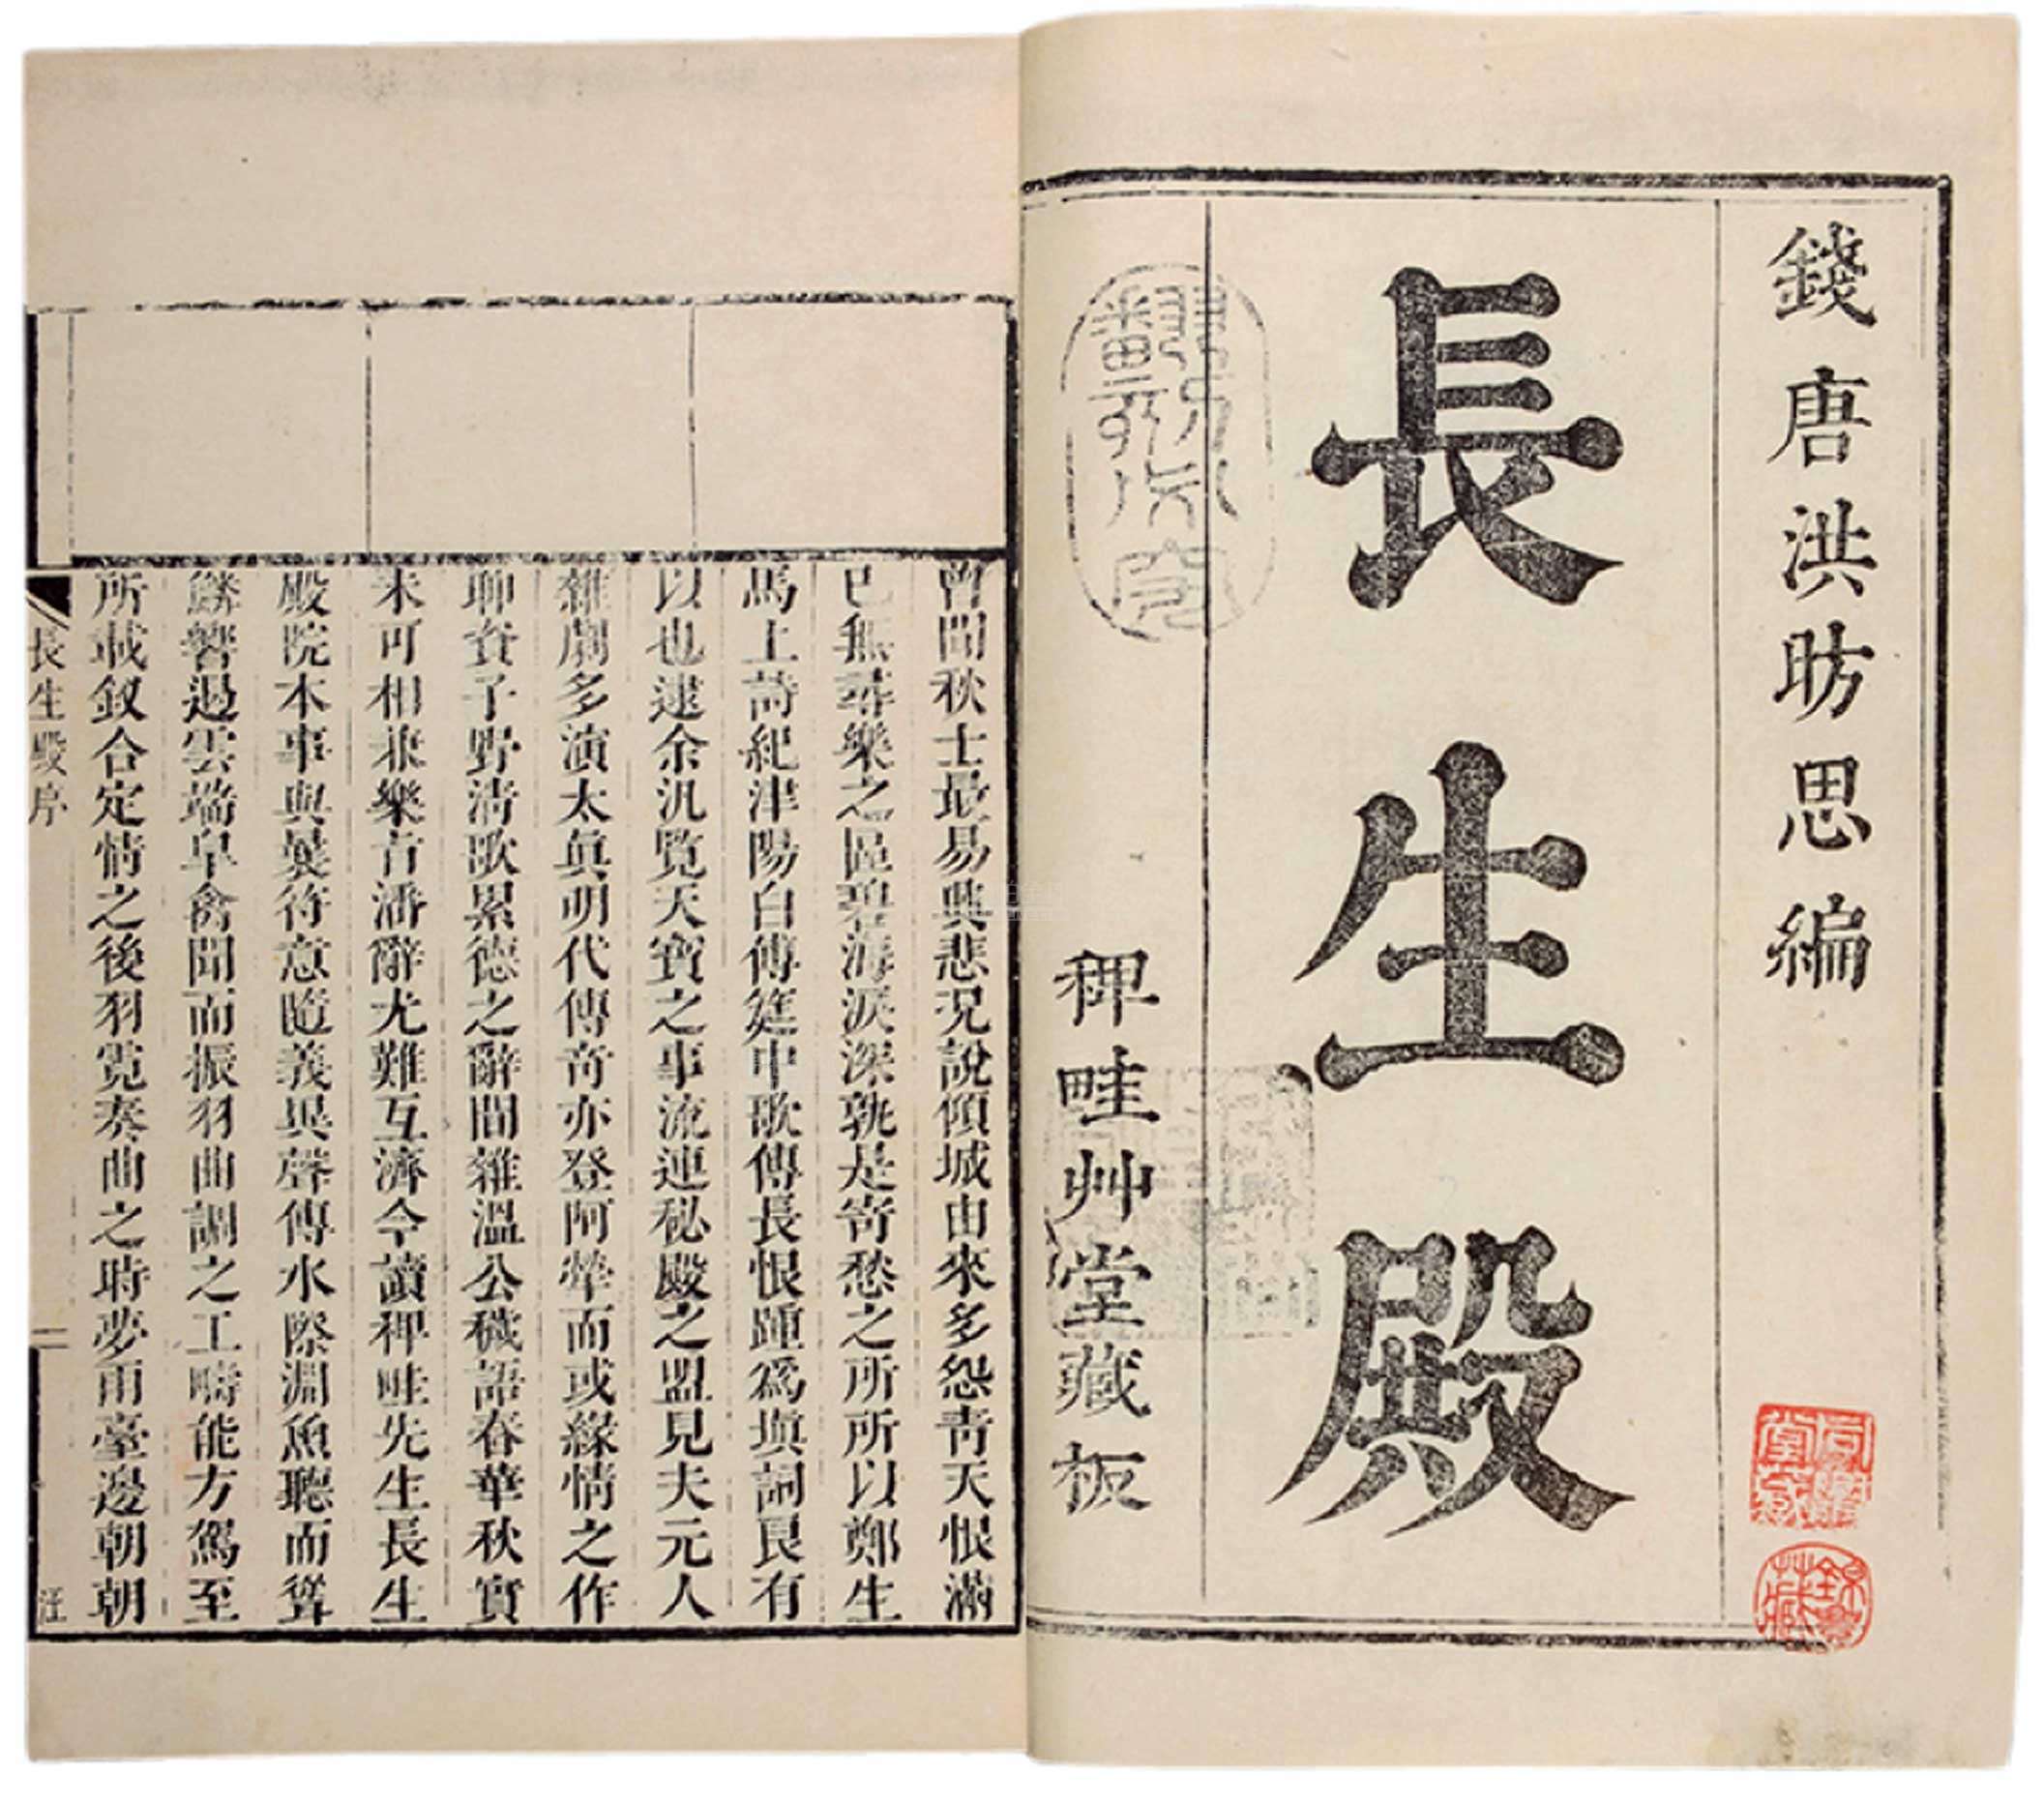 錢唐洪昉思編
長生殿
稗畦艸堂藏板
曾聞秋士最易興悲況說傾城由來多怨靑天恨滿
已無尋樂之區碧海淚深孰是寄愁之所所以鄭生
馬上詩紀津陽白傅庭中歌傳長恨踵爲塡詞良有
以也逮余汎覽天寶之事流連秘殿之盟見夫元人
雜劇多演太眞明代傳奇亦登阿犖而或緣情之作
聊資子野淸歌累德之辭間雜溫公穢語春華秋實
未可相兼樂旨潘辭尤難互濟今讀稗畦先生長生
殿院本事與曩符意隨義異聲傳水際淵魚聽而聳
鱗響遏雲端皐禽聞而振羽曲調之工疇能方駕至
所載釵合定情之後羽霓奏曲之時夢雨臺邊朝朝
長生殿序
二
汪